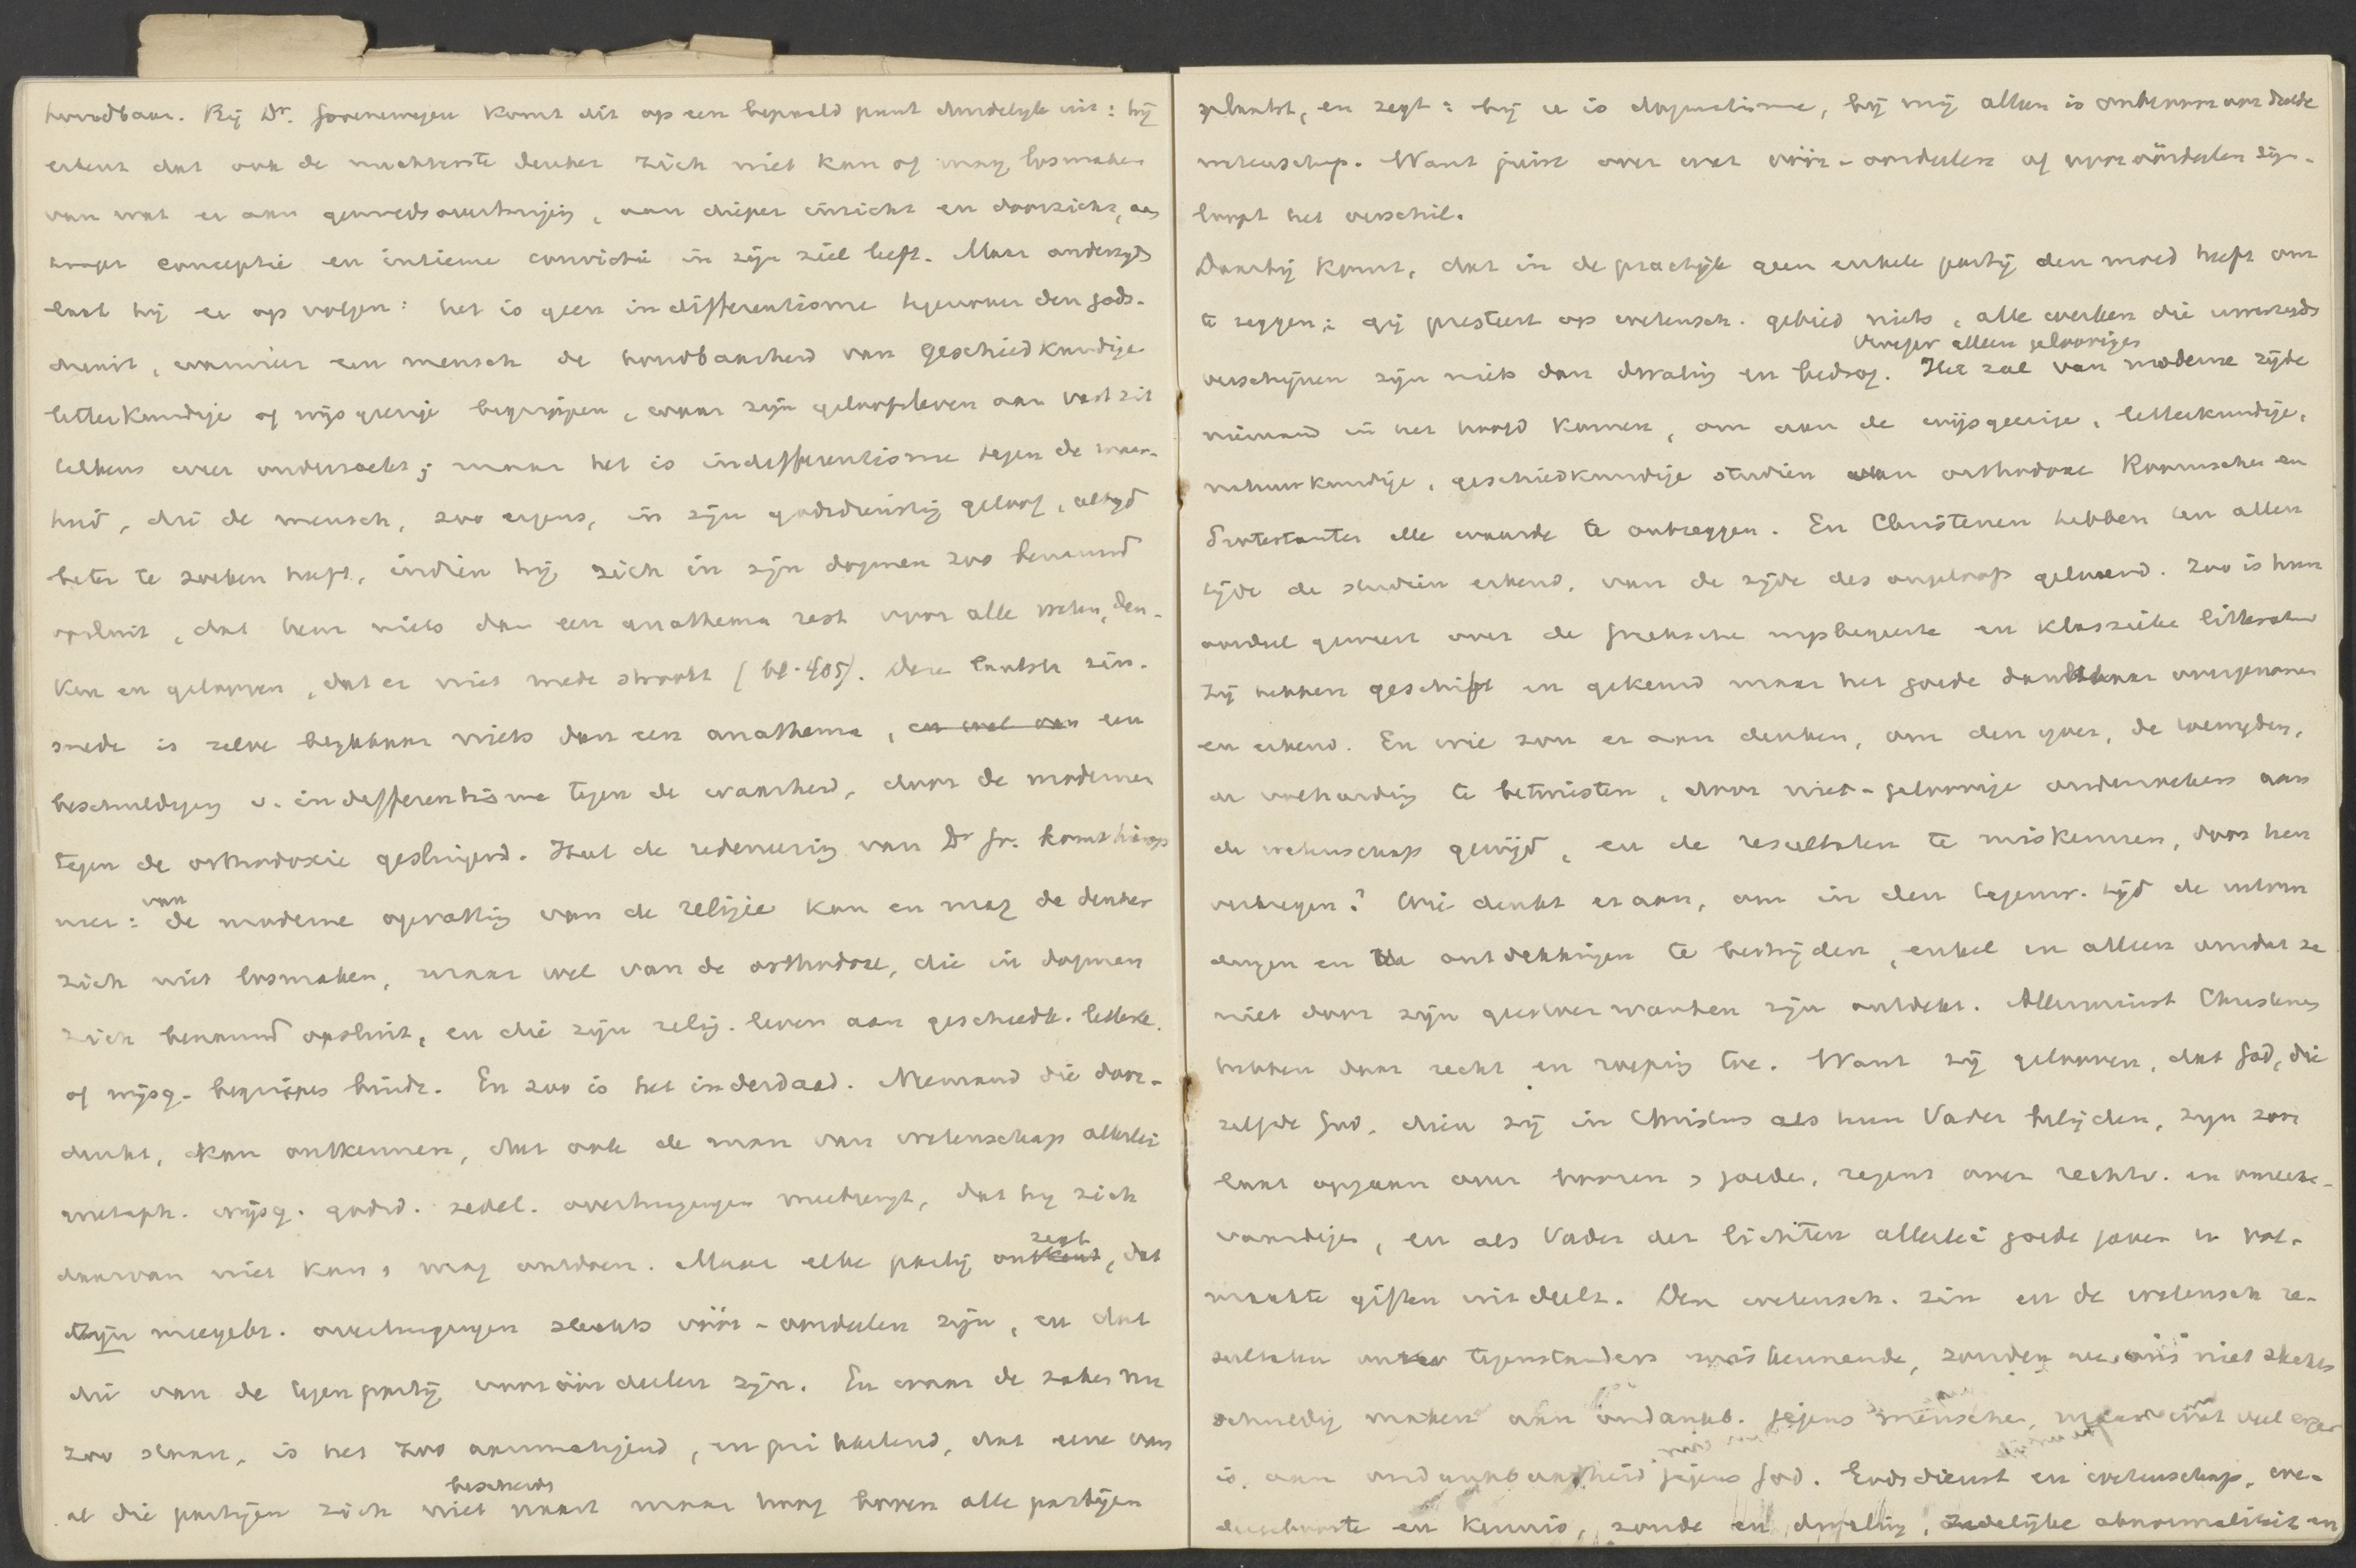 houdbaar. Bij Dr. Groenewegen komt dit op een bepaald punt duidelyk uit: hij
erkent dat ook de nuchterste denker zich niet kan of mag losmaken
van wat er aan gemoedsovertuiging, aan dieper inzicht en doorzicht, aan
conceptie en intieme convictie in zijn ziel leeft. Maar anderzyds
laat hij er op volgen: het is geen indifferentisme tegenover den gods-
dienst, wanneer een mensch de houdbaarheid van geschiedkundige
letterkundige of wijsgeerige begrippen, waar zijn geloofsleven aan vast zit
telkens weer onderzoekt; maar het is indifferentisme tegen de waar-
heid, die de mensch, zoo ergens, in zijn godsdienstig geloof, altyd
beter te zoeken heeft, indien hij zich in zijn dogmen zoo benauwd
opsluit, dat hem niets dan een anathema rest voor alle weten, den-
ken en gelooven, dat er niet mede strookt (bl. 405). Deze laatste zin-
snede is zelve blykbaar niets dan een anathema, en wel van een
beschuldiging v. indifferentisme tegen de waarheid, door de moderne
tegen de orthodoxie geslingerd. Heel de redeneering van Dr Gr. komt hierop
neer: van de moderne opvatting van de religie kan en mag de denker
zich niet losmaken, maar wel van de orthodoxe, die in dogmen
zich benauwd opsluit, en die zijn relig. leven aan geschiedk. letterk.
of wijsg. begrippen bindt. En zoo is het inderdaad. Niemand die door-
denkt, kan ontkennen, dat ook de man van wetenschap allerlei
metaph. wijsg. godsd. zedel. overtuigingen meebrengt, dat hy zich
daarvan niet kan, mag ontdoen. Maar elke partij ontkent zegt, dat
zijn meegebr. overtuigingen slechts vóór-oordeelen zijn, en dat
die van de tegenpartij vooróórdeelen zijn. En waar de zaken nu
zoo staan, is het zoo aanmatigend, en prikkelend, dat eene van
al die partijen zich niet bescheiden naast maar hoog boven alle partijen
plaatst, en zegt: bij u is dogmatisme, bij mij alleen is onbevooroordeelde
wetenschap. Want juist over wat vóór-oordeelen of vooróórdeelen zijn.
loopt het verschil.
Daarbij komt, dat in de practijk geen enkele partij den moed heeft om
te zeggen: gij presteert op wetensch. gebied niets, alle werken die uwerzyds
verschijnen zijn niets dan dwaling en bedrog. Het zal van moderne zijde
niemand in het hoofd komen, om aan de wijsgeerige, letterkundige,
natuurkundige, geschiedkundige studiën van orthodoxe Roomschen en
Protestanten alle waarde te ontzeggen. En Christenen hebben ten allen
tijde de studiën erkend, van de zijde des ongeloofs geleverd. Zoo is hun
oordeel geweest over de Grieksche wijsbegeerte en klassieke litteratuur
Zij hebben geschift en gekeurd maar het goede dankbaar overgenomen
en erkend. En wie zou er aan denken, om den yver, de toewyding,
de volharding te betwisten, door niet-geloovige onderzoekers aan
de wetenschap gewijd, en de resultaten te miskennen, door hen
verkregen? Wie denkt eraan, om in den tegenw. tijd de uitvin
dingen en de ontdekkingen te bestrijden, enkel en alleen omdat ze
niet door zijn geestverwanten zijn ontdekt. Allerminst Christenen
hebben daar recht en roeping toe. Want zij gelooven, dat God, die
zelfde God, dien zij in Christus als hun Vader belijden, zyn zon
laat opgaan over boozen & goede, regent over rechtv. en onrecht-
vaardigen, en als Vader der lichten allerlei goede gaven en vol-
maakte giften uitdeelt. Den wetensch. zin en de wetensch re-
sultaten onzer tegenstanders miskennende, zouden we ons niet slechts
schuldig maken aan ondankb. jegens menschen, maar wat veel erger
is, aan ondankbaarheid jegens God. Godsdienst en wetenschap,
en kennis, zonde en dwaling, zedelijke abnormaliteit en